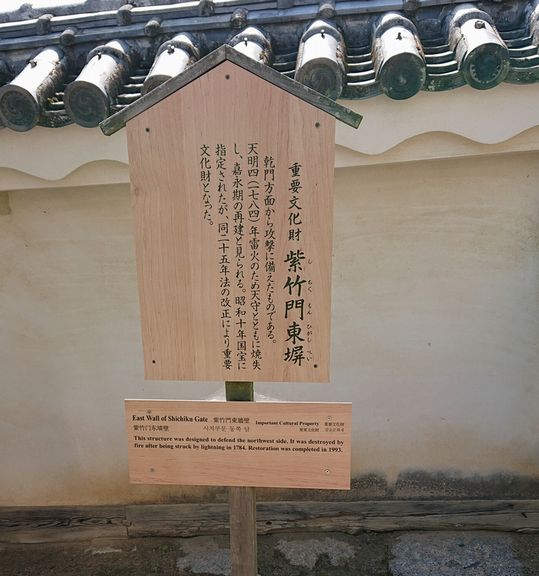 重要文化財 紫竹門東塀
しちくもんひがしべい
乾門方面から攻撃に備えたものである。
天明四(一七八四)年雷火のため天守とともに焼失
し、嘉永期の再建と見られる。昭和十年国宝に
指定されたが、同二十五年法の改正により重要
文化財となった。
East Wall of Shichiku Gate 紫竹門東牆壁 Important Cultural Property 重要文化財
紫竹门东墙壁 시치쿠문 동쪽 담 重要文化财 중요문화재
This structure was designed to defend the northwest side. It was destroyed by
fire after being struck by lightning in 1784. Restoration was completed in 1993.